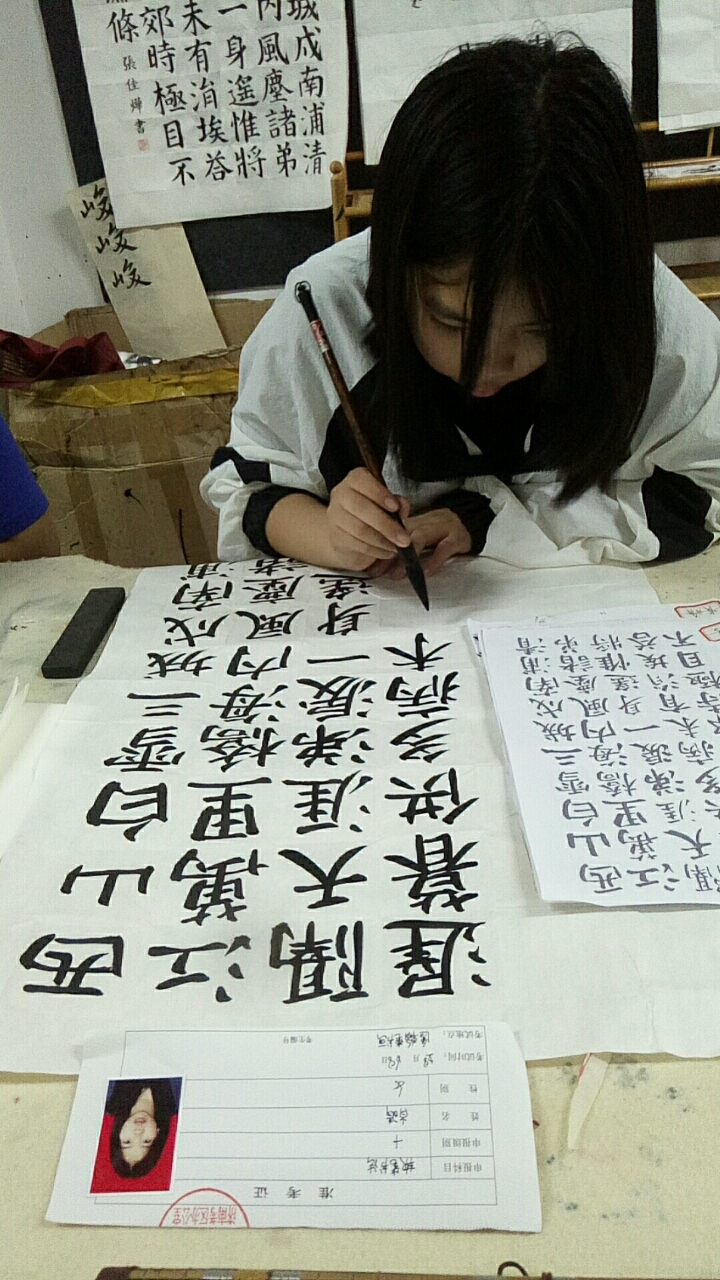 城戍南浦清
內風塵諸弟
一身遙惟將
未有涓埃答
郊時極目不
條
張佳 書
峻峻峻
西山白雪三城戍南浦
江萬里橋海內風塵諸
隔天涯涕淚一身遙
遲暮供多病未
西山白雪三城戍南浦清
江萬里橋海內風塵諸弟
隔天涯涕淚一身遙惟將
多病未有埃答
准考证
申报科目 软笔书法
申报级别 十
姓名
性别 女
考试时间:
考试地点:
考生编号
济南考区办公室